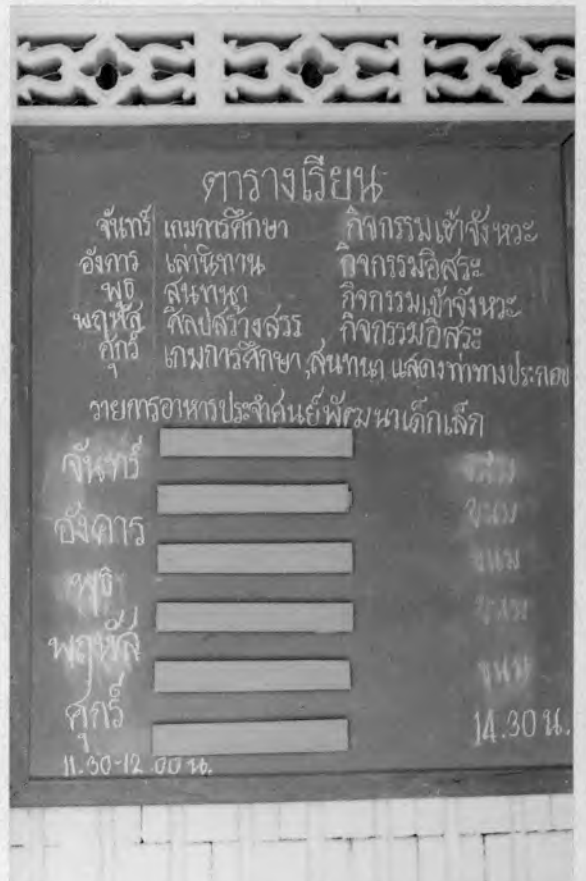 ตารางเรียน
จันทร์ เกมการศึกษา กิจกรรมเข้าจังหวะ
อังคาร เล่านิทาน กิจกรรมอิสระ
พุธ สนทนา กิจกรรมเข้าจังหวะ
พฤหัส ศิลปสร้างสรร กิจกรรมอิสระ
ศุกร์ เกมการศึกษา,สนทนา แสดงท่าทางประกอบ
รายการอาหารประจำศูนย์พัฒนาเด็กเล็ก
จันทร์ ขนม
อังคาร ขนม
พุธ ขนม
พฤหัส ขนม
ศุกร์ ขนม
11.30-12.00 น. 14.30 น.